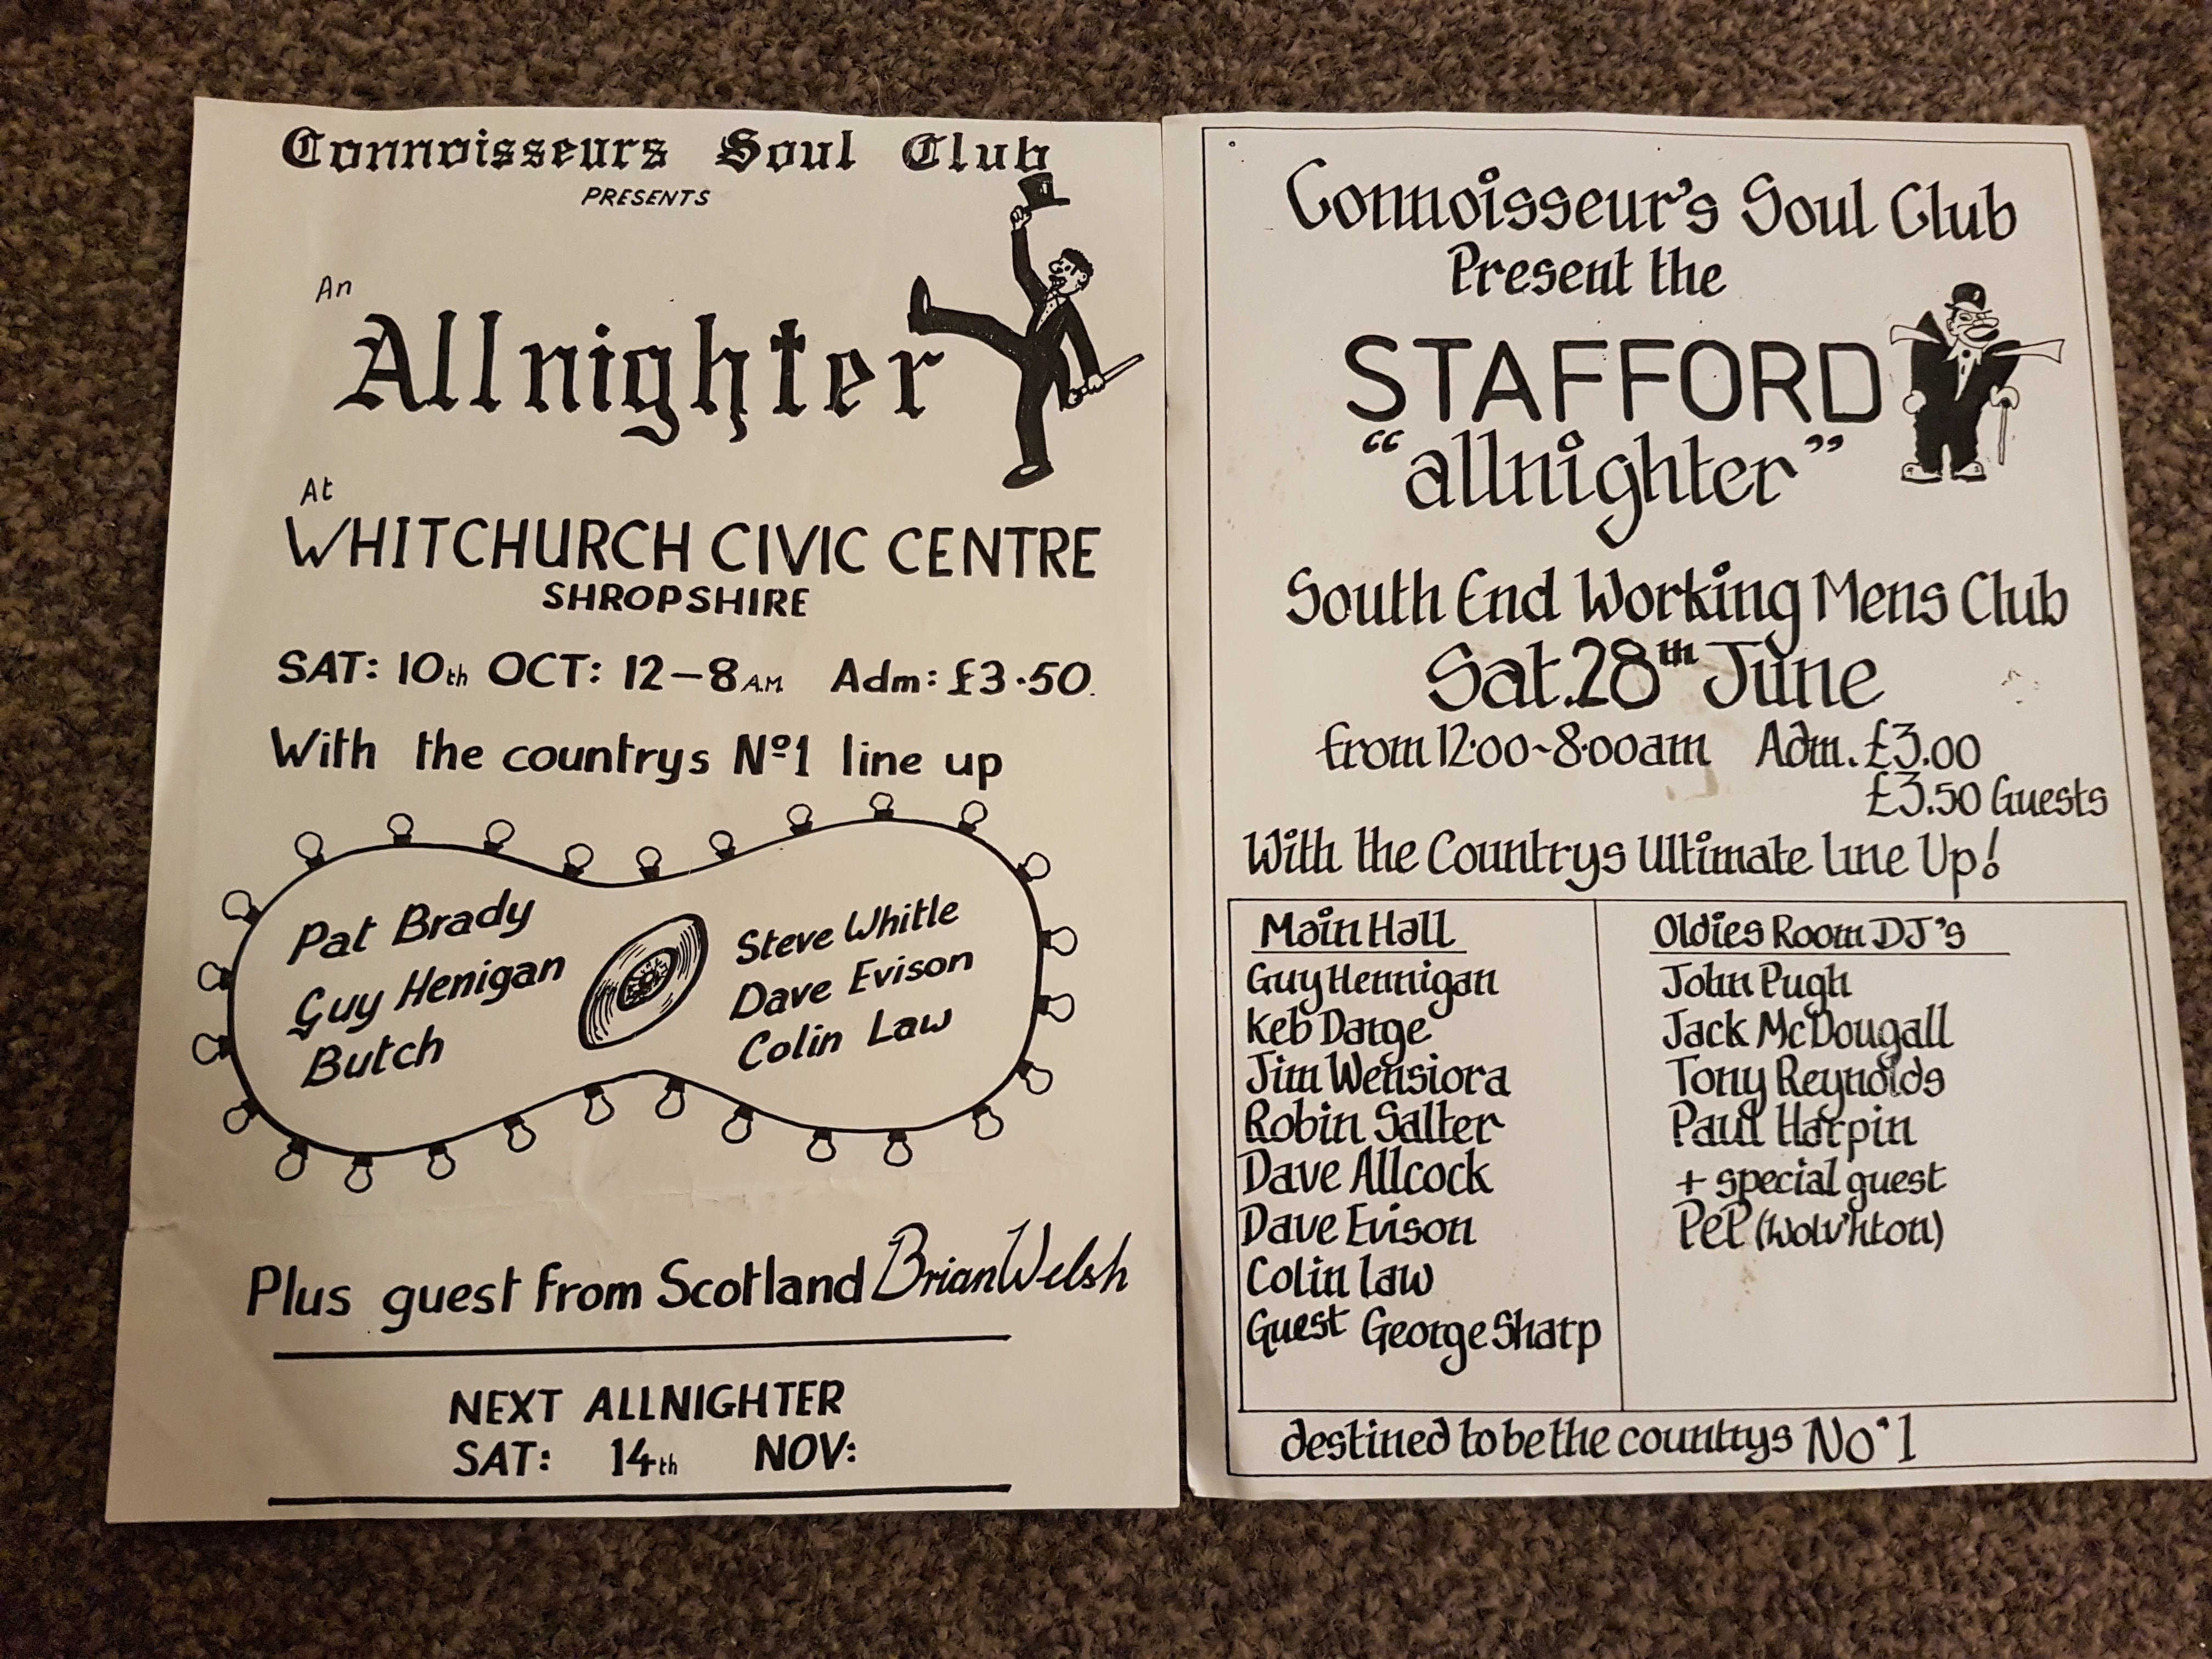 Connoisseurs Soul Club
PRESENTS
An
Allnighter
At
WHITCHURCH CIVIC CENTRE
SHROPSHIRE
SAT: 10th OCT: 12-8 A.M. Adm: £3.50.
With the countrys Nº1 line up
Pat Brady
Guy Henigan
Butch
Steve Whitle
Dave Evison
Colin Law
Plus guest from Scotland Brian Welsh
NEXT ALLNIGHTER
SAT: 14th NOV:
Connoisseur's Soul Club
Present the
STAFFORD
"allnighter"
South End Working Mens Club
Sat. 28th June
from 12.00~8.00am Adm. £3.00
£3.50 Guests
With the Countrys Ultimate Line Up!
Main Hall
Guy Hennigan
Keb Darge
Jim Wensiora
Robin Salter
Dave Allcock
Dave Evison
Colin Law
Guest George Sharp
Oldies Room DJ's
John Pugh
Jack McDougall
Tony Reynolds
Paul Harpin
+ special guest
PeP (Wolv'hton)
destined to be the countrys No.1